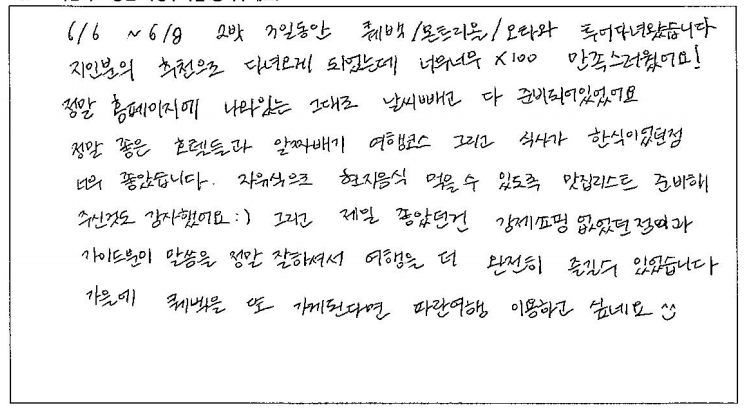 6/6 ~ 6/8 2박 3일동안 퀘백/몬트리올/오타와 투어다녀왔습니다
지인분의 추천으로 다녀오게 되었는데 너무너무 X100 만족스러웠어요!
정말 홈페이지에 나와있는 그대로 날씨빼고 다 준비되어있었어요
정말 좋은 호텔들과 알짜배기 여행코스 그리고 식사가 한식이었던점
너무 좋았습니다. 자유식으로 현지음식 먹을 수 있도록 맛집리스트 준비해
주신것도 감사했어요:) 그리고 제일 좋았던건 강제쇼핑 없었던 점과
가이드분이 말씀을 정말 잘하셔서 여행을 더 완전히 즐길수 있었습니다
가을에 퀘백을 또 가게된다면 파란여행 이용하고 싶네요